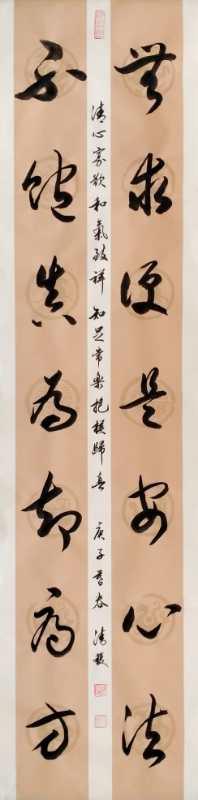 無求便是安心法
清心寡欲和氣致祥 知足常樂抱樸歸真 庚子暮春
不飽真為却病方